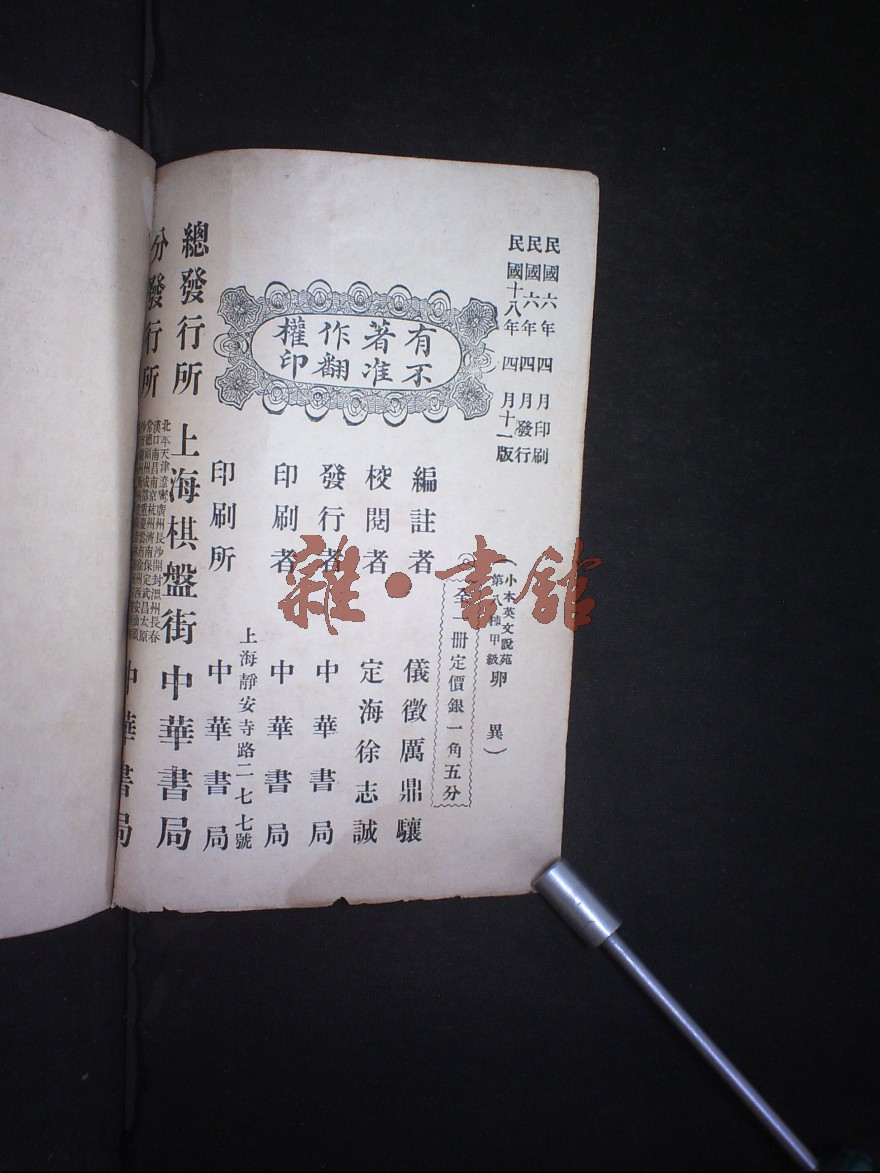 民國六年四月印刷
民國六年四月發行
民國十八年四月十一版
有著作權
不准翻印
(小本英文說苑第八種甲級 卵異)
全一冊定價銀一角五分
編註者 儀徵厲鼎驤
校閱者 定海徐志誠
發行者 中華書局
印刷者 中華書局
上海靜安寺路二七七號
印刷所 中華書局
總發行所 上海棋盤街 中華書局
分發行所
北平天津遼寧廣州長沙開封溫州長春
中華書局
雜·書館